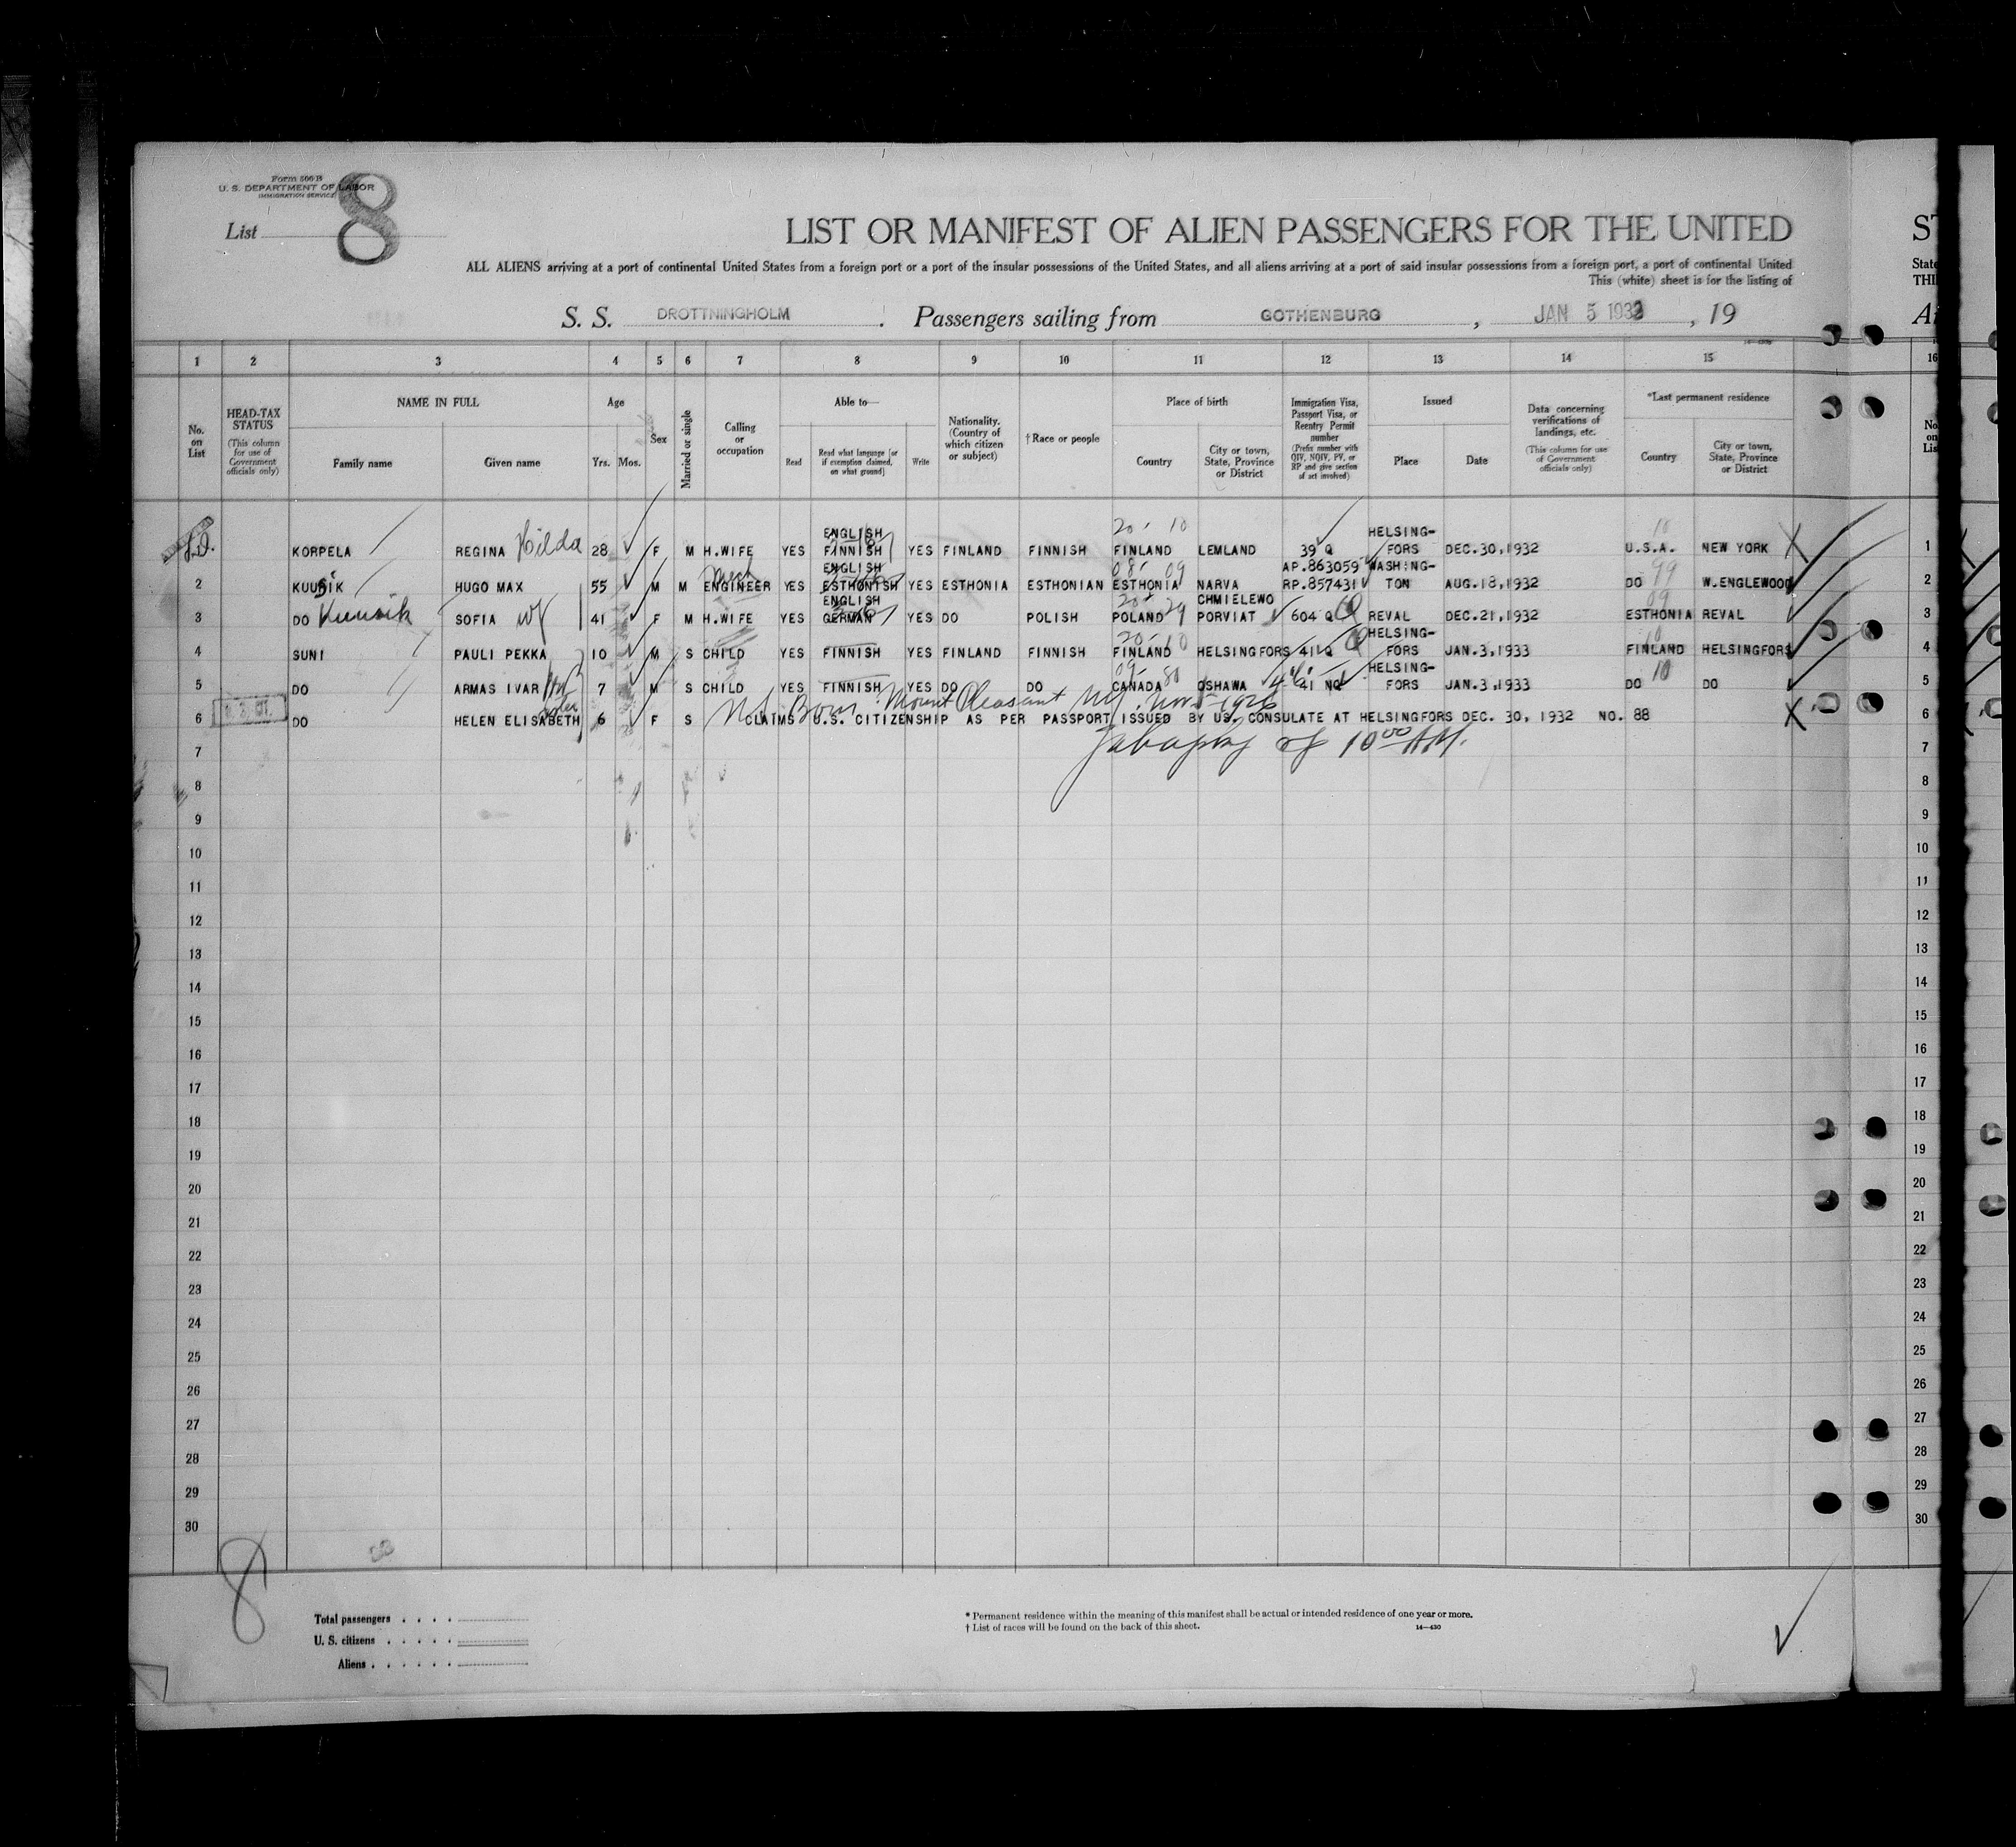 Form 500 B
U. S. DEPARTMENT OF LABOR
IMMIGRATION SERVICE
List 8
LIST OR MANIFEST OF ALIEN PASSENGERS FOR THE UNITED ST
ALL ALIENS arriving at a port of continental United States from a foreign port or a port of the insular possessions of the United States, and all aliens arriving at a port of said insular possessions from a foreign port, a port of continental United State
This (white) sheet is for the listing of THI
S. S. DROTTNINGHOLM . Passengers sailing from GOTHENBURG , JAN 5 1933 , 19
1 2 3 4 5 6 7 8 9 10 11 12 13 14 15 16
No. on List
HEAD-TAX STATUS (This column for use of Government officials only)
NAME IN FULL
Family name Given name
Age
Yrs. Mos.
Sex
Married or single
Calling or occupation
Able to—
Read Read what language [or if exemption claimed, on what ground] Write
Nationality. (Country of which citizen or subject)
†Race or people
Place of birth
Country City or town, State, Province or District
Immigration Visa, Passport Visa, or Reentry Permit number (Prefix number with QIV, NQIV, PV, or RP and give section of act involved)
Issued
Place Date
Data concerning verifications of landings, etc. (This column for use of Government officials only)
*Last permanent residence
Country City or town, State, Province or District
1 KORPELA REGINA Hilda 28 F M H.WIFE YES ENGLISH FINNISH YES FINLAND FINNISH FINLAND LEMLAND 39 Q HELSING-FORS DEC.30,1932 U.S.A. NEW YORK 1
2 KUUSIK HUGO MAX 55 M M Mech ENGINEER YES ENGLISH ESTHONISH YES ESTHONIA ESTHONIAN ESTHONIA NARVA AP.863059 RP.857431 WASHING-TON AUG.18,1932 DO W.ENGLEWOOD 2
3 DO Kuusik SOFIA wf 41 F M H.WIFE YES ENGLISH GERMAN YES DO POLISH POLAND CHMIELEWO PORVIAT 604 Q REVAL DEC.21,1932 ESTHONIA REVAL 3
4 SUNI PAULI PEKKA 10 M S CHILD YES FINNISH YES FINLAND FINNISH FINLAND HELSINGFORS 41 Q HELSING-FORS JAN.3,1933 FINLAND HELSINGFORS 4
5 DO ARMAS IVAR 7 M S CHILD YES FINNISH YES DO DO CANADA OSHAWA 41 NQ HELSING-FORS JAN.3,1933 DO DO 5
Born Mount Pleasant NY. Nov. 5-1926
6 DO HELEN ELISABETH 6 F S CLAIMS U.S. CITIZENSHIP AS PER PASSPORT ISSUED BY US. CONSULATE AT HELSINGFORS DEC. 30, 1932 NO. 88 6
7 7
8 8
9 9
10 10
11 11
12 12
13 13
14 14
15 15
16 16
17 17
18 18
19 19
20 20
21 21
22 22
23 23
24 24
25 25
26 26
27 27
28 28
29 29
30 30
8
Total passengers . . . .
U. S. citizens . . . . .
Aliens . . . . . .
* Permanent residence within the meaning of this manifest shall be actual or intended residence of one year or more.
† List of races will be found on the back of this sheet.
14—430